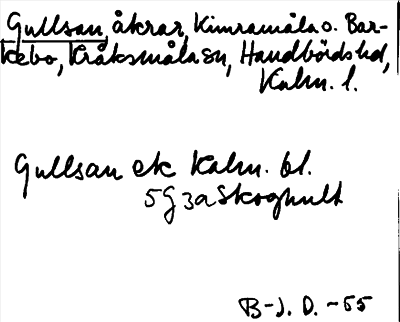 Gullsan, åkrar, Kimramåla o. Bar-
kebo, Kråksmåla sn, Handbörds hd,
Kalm. l.
Gullsan ek Kalm. bl.
5G3a Skoghult
B-J. D. -55